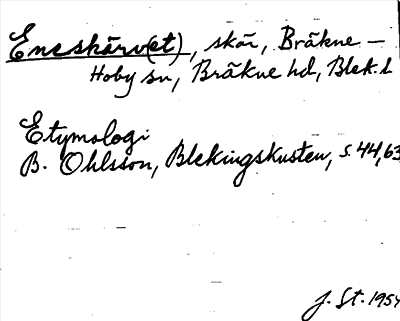 Eneskärv(et), skär, Bräkne –
Hoby sn, Bräkne hd, Blek. l
Etymologi
B. Ohlsson, Blekingskusten, s. 44, 63
J. St. 1954